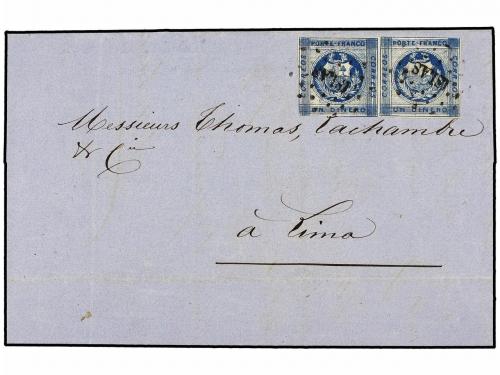 PORTE FRANCO PORTE FRANCO
CORREOS CORREOS CORREOS CORREOS
UN DINERO UN DINERO
Messieurs Thomas, Lachambre
& Cie
à Lima